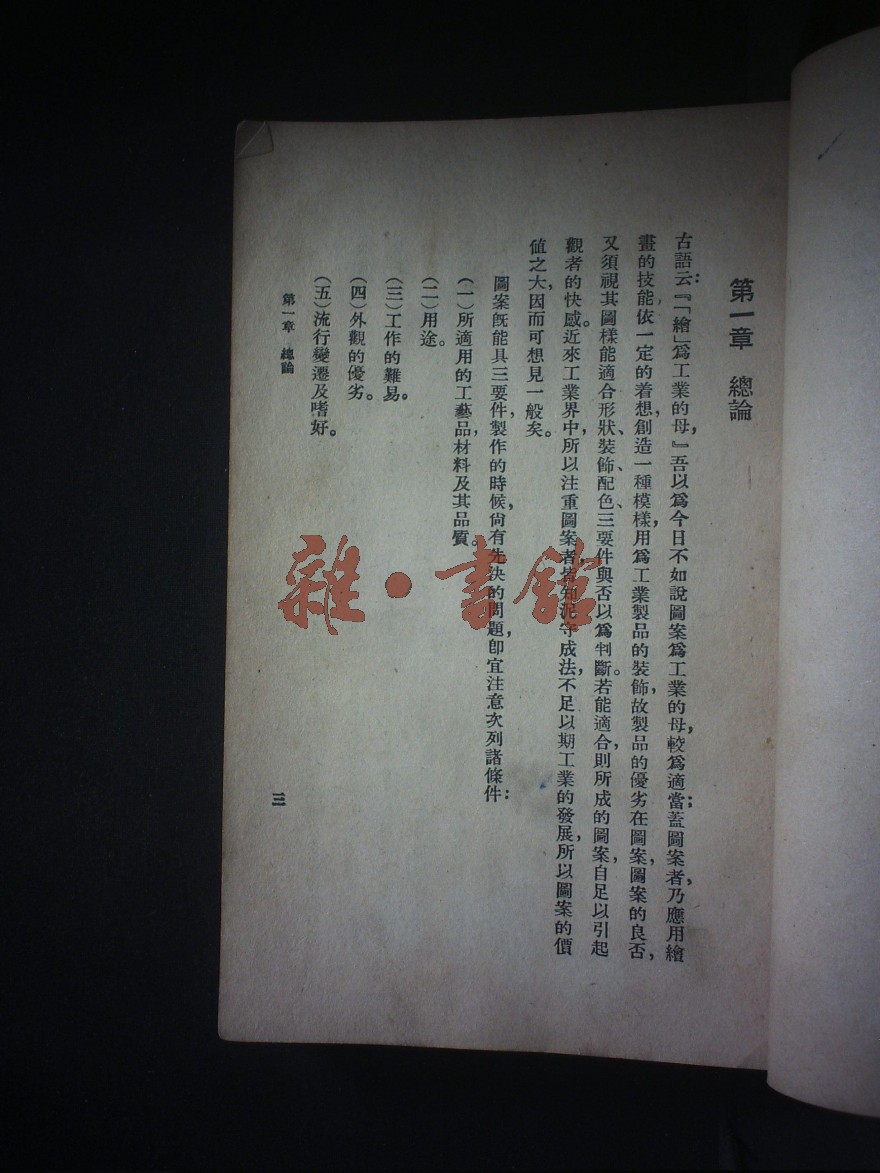 第一章　總論
古語云:『「繪」爲工業的母,』吾以爲今日不如說圖案爲工業的母,較爲適當;蓋圖案者,乃應用繪
畫的技能,依一定的着想,創造一種模樣,用爲工業製品的裝飾,故製品的優劣在圖案,圖案的良否,
又須視其圖樣能適合形狀、裝飾、配色、三要件與否以爲判斷。若能適合,則所成的圖案,自足以引起
觀者的快感。近來工業界中,所以注重圖案者,皆知泥守成法,不足以期工業的發展,所以圖案的價
值之大,因而可想見一般矣。
圖案旣能具三要件,製作的時候,尙有先決的問題,卽宜注意次列諸條件:
(一)所適用的工藝品,材料及其品質。
(二)用途。
(三)工作的難易。
(四)外觀的優劣。
(五)流行變遷及嗜好。
第一章　總論
三
雜·書館